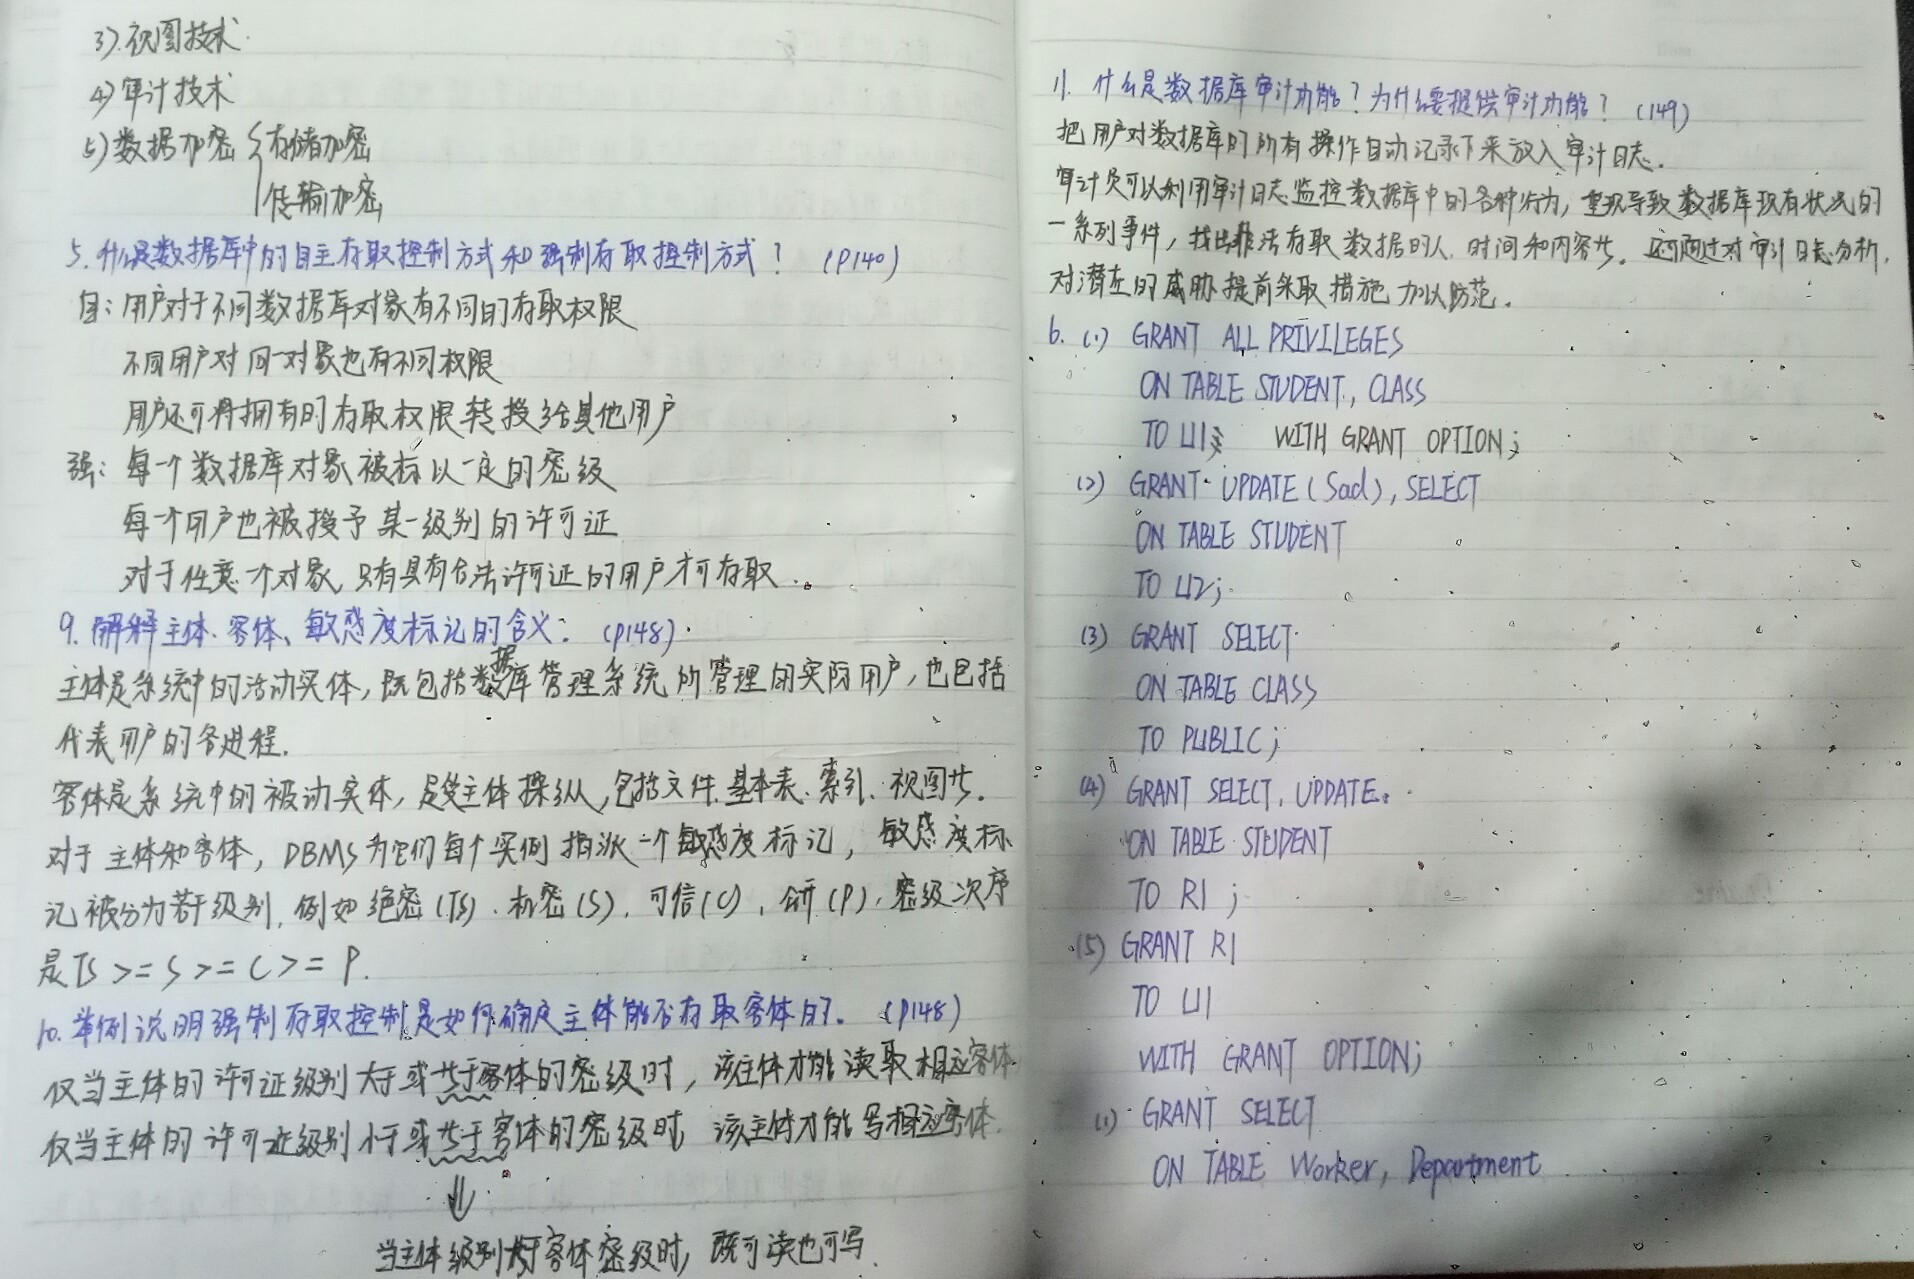 3) 视图技术.
4) 审计技术
5) 数据加密 { 存储加密
传输加密
5. 什么是数据库中的自主存取控制方式和强制存取控制方式? (P140)
自: 用户对于不同数据库对象有不同的存取权限
不同用户对同一对象也有不同权限
用户还可将拥有的存取权限转授给其他用户
强: 每一个数据库对象被标以一定的密级
每一个用户也被授予某一级别的许可证
对于任意一个对象,只有具有合法许可证的用户才可存取.
9. 解释主体、客体、敏感度标记的含义: (P148).
主体是系统中的活动实体, 既包括数据库管理系统所管理的实际用户, 也包括
代表用户的各进程.
客体是系统中的被动实体, 是受主体操纵, 包括文件、基本表、索引、视图等.
对于主体和客体, DBMS为它们每个实例指派一个敏感度标记, 敏感度标
记被分为若干级别, 例如绝密(TS)、机密(S)、可信(C)、公开(P), 密级次序
是TS >= S >= C >= P.
10. 举例说明强制存取控制是如何确定主体能否存取客体的. (P148)
仅当主体的许可证级别大于或等于客体的密级时, 该主体才能读取相应客体.
仅当主体的许可证级别小于或等于客体的密级时, 该主体才能写相应客体.
⇓
当主体级别等于客体密级时, 既可读也可写.
11. 什么是数据库审计功能? 为什么要提供审计功能? (149)
把用户对数据库的所有操作自动记录下来放入审计日志.
审计员可以利用审计日志监控数据库中的各种行为, 重现导致数据库现有状况的
一系列事件, 找出非法存取数据的人、时间和内容等. 还可通过对审计日志分析,
对潜在的威胁提前采取措施加以防范.
6. (1) GRANT ALL PRIVILEGES
ON TABLE STUDENT, CLASS
TO U1 WITH GRANT OPTION;
(2) GRANT UPDATE (Sad), SELECT
ON TABLE STUDENT
TO U2;
(3) GRANT SELECT
ON TABLE CLASS
TO PUBLIC;
(4) GRANT SELECT, UPDATE.
ON TABLE STUDENT
TO R1;
(5) GRANT R1
TO U1
WITH GRANT OPTION;
(1) GRANT SELECT
ON TABLE Worker, Department